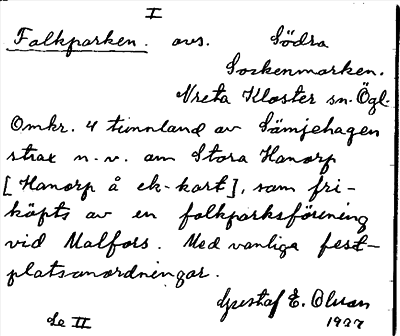 I
Folkparken. avs. Södra
Sockenmarken.
Vreta Kloster sn. Ögl.
Omkr. 4 tunnland av Sämjehagen
strax n.v. om Stora Hanorp
[Hanorp å ek-kart], som fri-
köpts av en folkparksförening
vid Malfors. Med vanliga fest-
platsanordningar.
Gustaf E. Olsson
1927
Se II